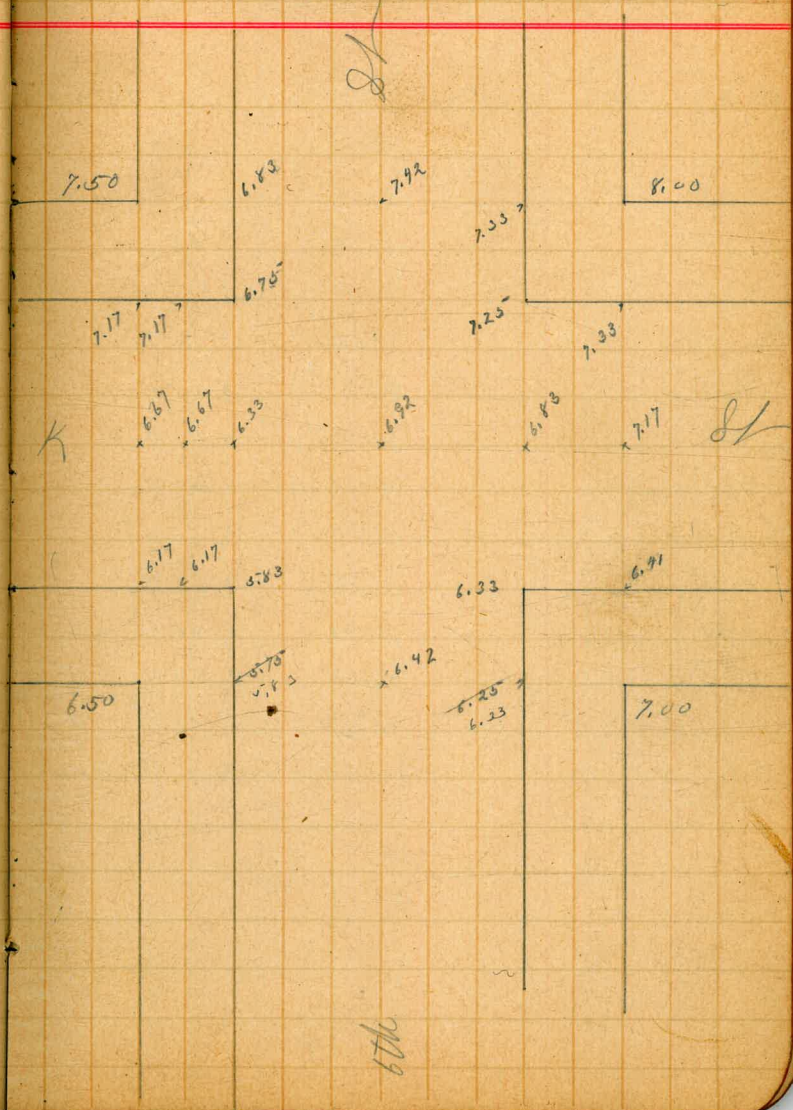 St
7.50
6.83
7.42
7.33
8.00
6.75
7.25
7.17
7.17
7.33
K
6.67
6.67
6.33
6.92
6.83
7.17
St
6.17
6.17
5.83
6.33
6.41
5.75
5.83
6.42
6.25
6.33
6.50
7.00
6th